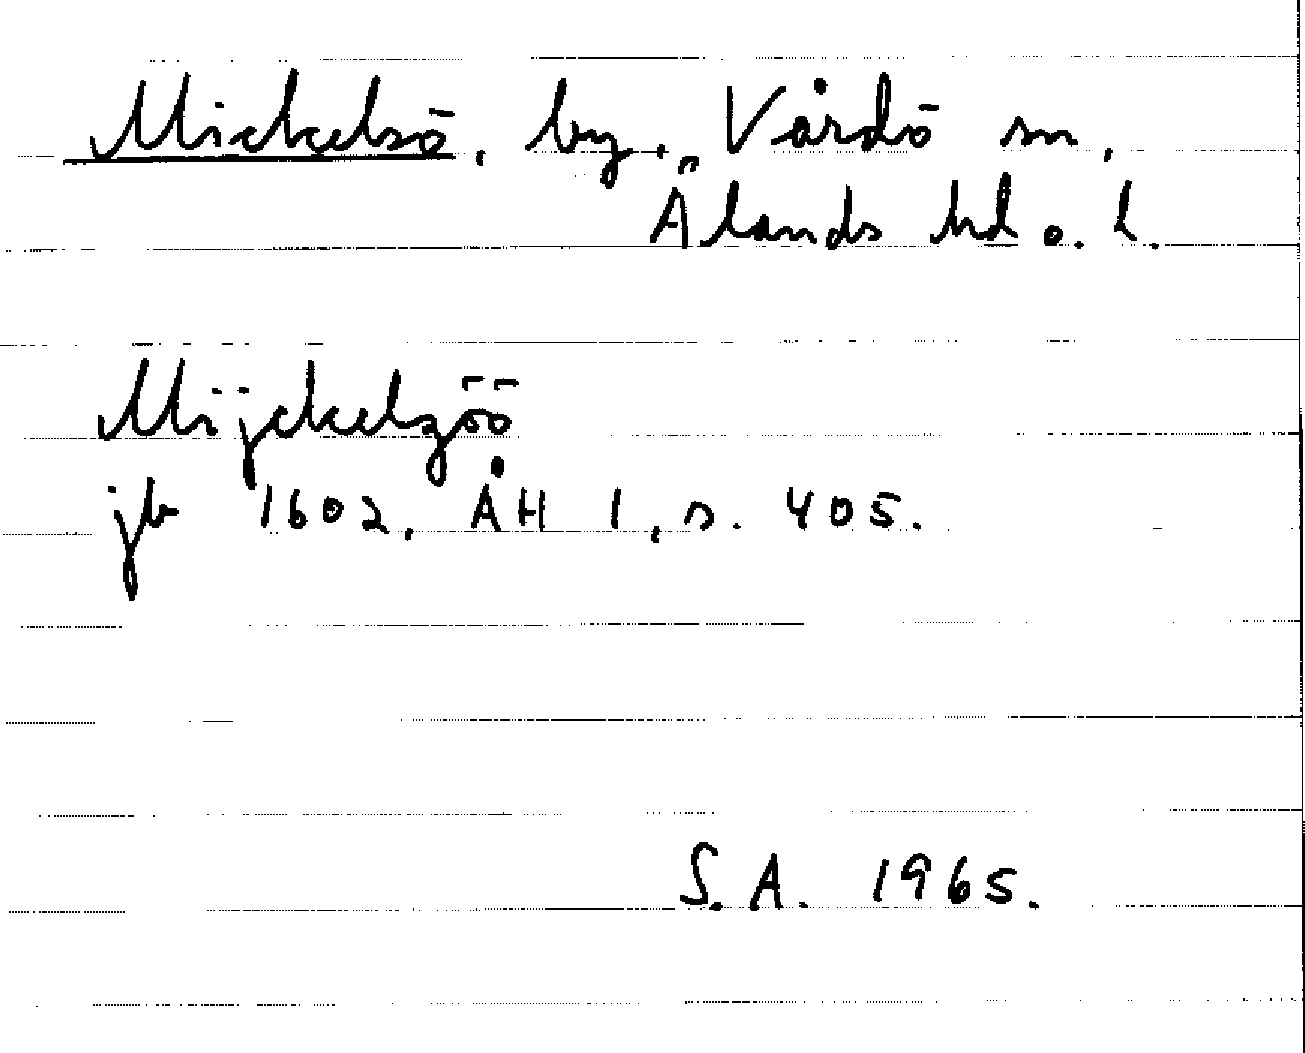 Mickelsö, by, Vårdö sn,
Ålands hd o. l.
Mijckelzöö
jb 1602, ÅH 1, s. 405.
S.A. 1965.